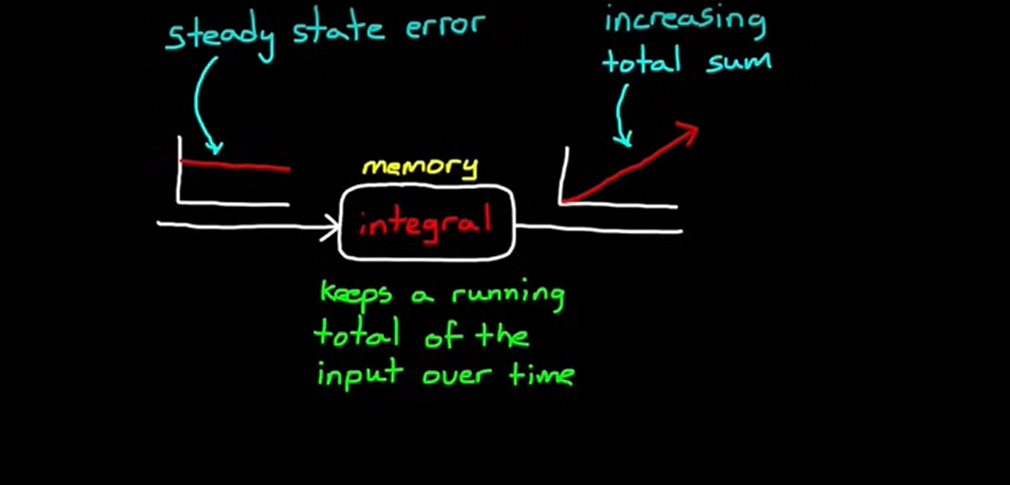 steady state error
increasing
total sum
memory
integral
keeps a running
total of the
input over time